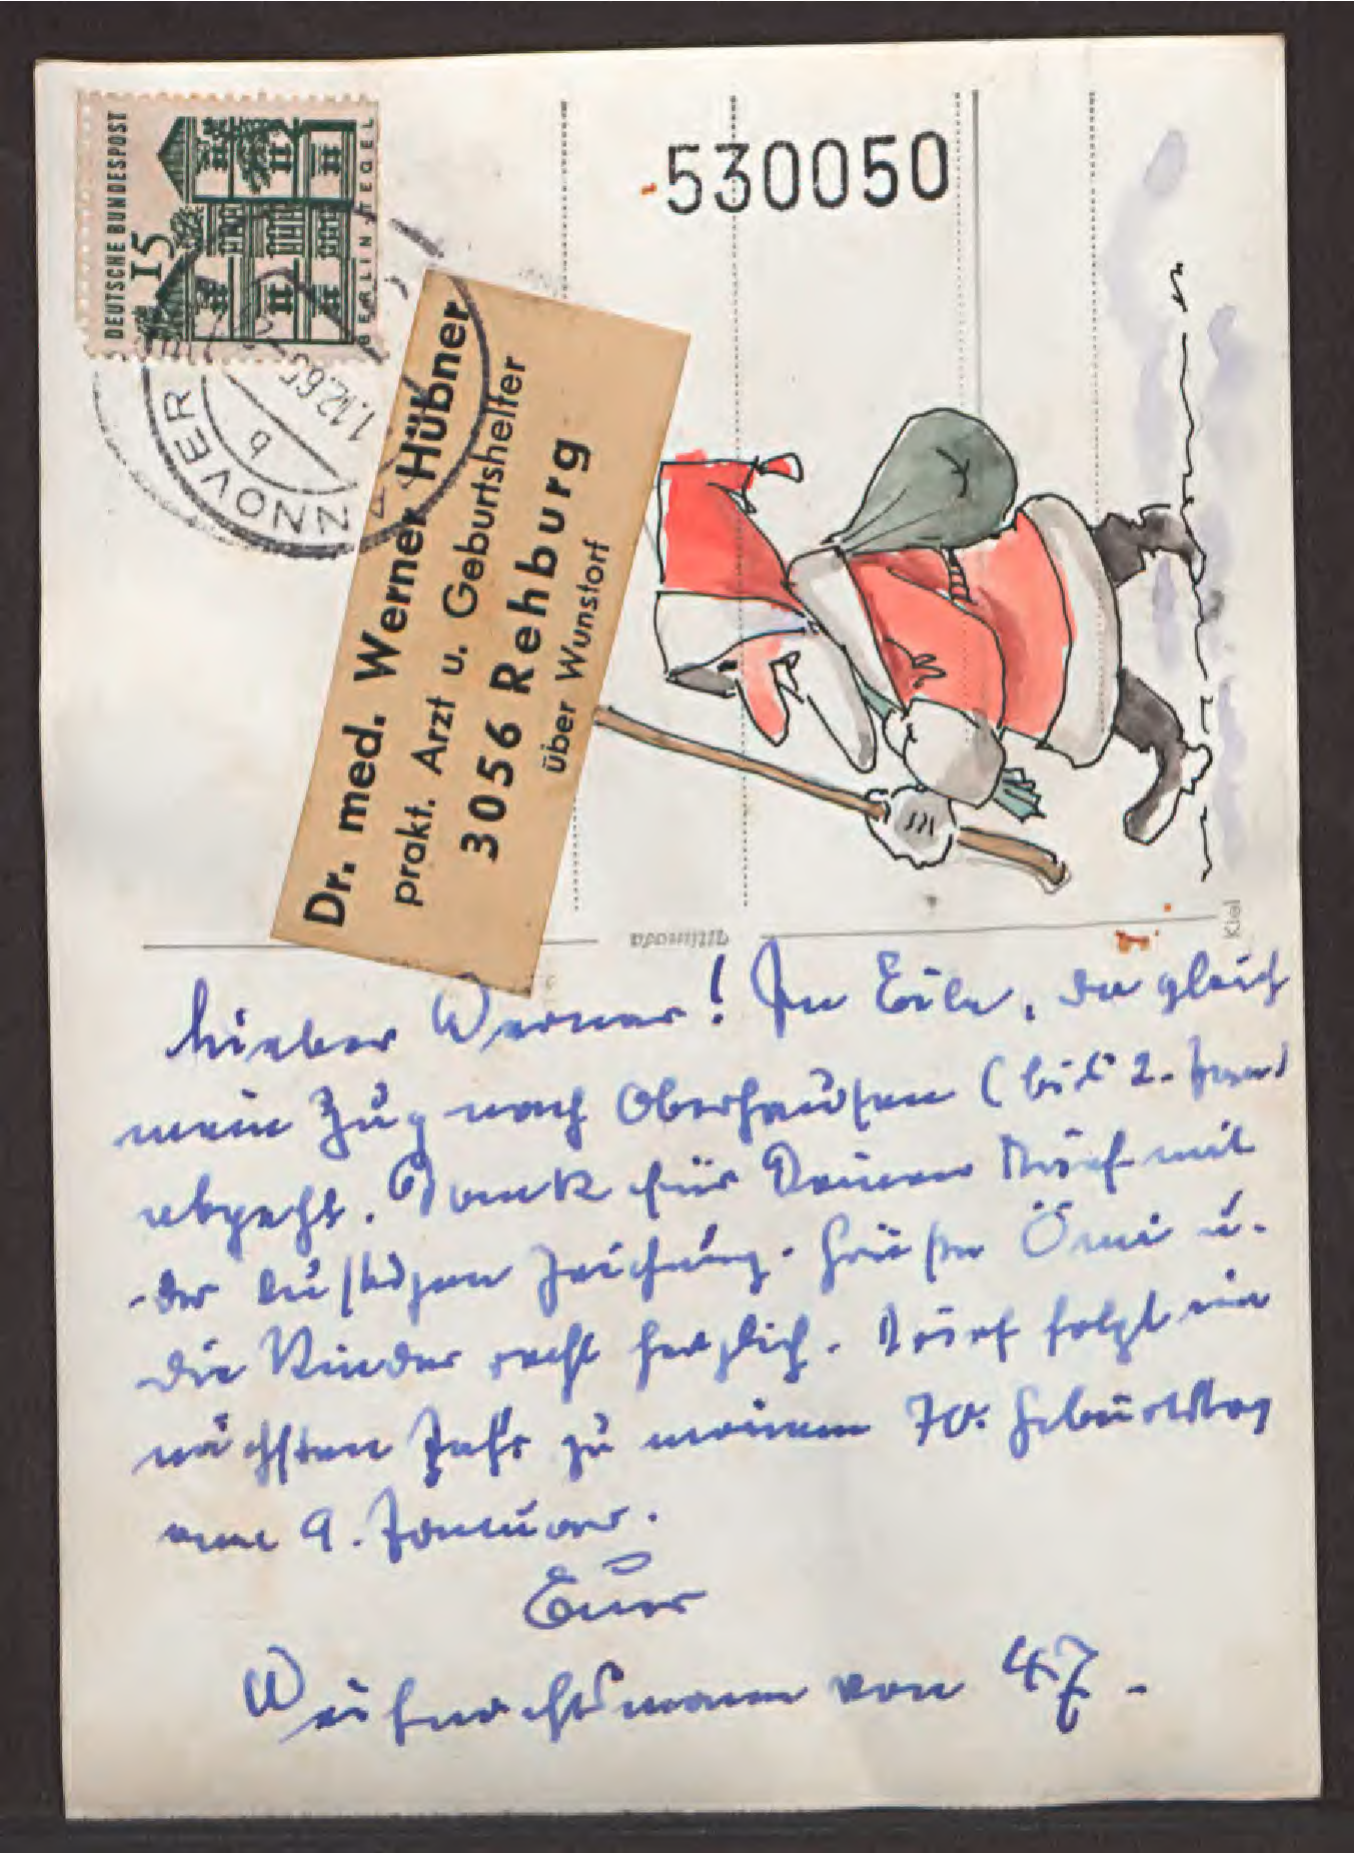 DEUTSCHE BUNDESPOST
15
BERLIN-TEGEL
HANNOVER
b
1.12.65
530050
Dr. med. Werner Hübner
prakt. Arzt u. Geburtshelfer
3056 Rehburg
über Wunstorf
Ultimoda
Kiel
Lieber Werner! In Eile, da gleich
mein Zug nach Oberhausen (bis 2. Jan.)
abgeht. Dank für Deinen Brief mit
der lustigen Zeichnung. Grüße Ömi u.
die Kinder recht herzlich. Brief folgt im
nächsten Jahr zu meinem 70. Geburtstag
am 9. Januar.
Euer
Weihnachtsmann von 47.